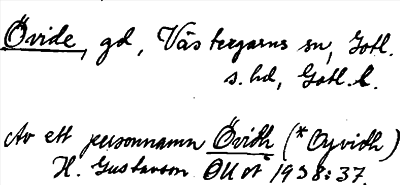 Övide, gd, Västergarns sn, Gotl.
s. hd, Gotl. l.
Av ett personnamn Övidh (*Oyvidh)
H. Gustavson ÖUoT 1938:37.